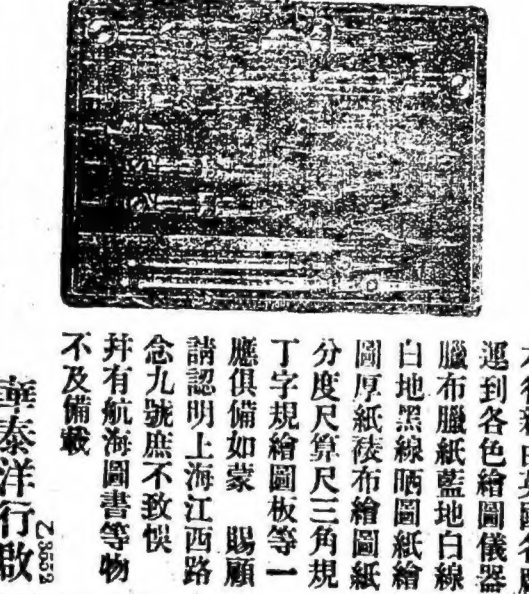 運到各色繪圖儀器
臘布臘紙藍地白線
白地黑線晒圖紙繪
圖厚紙棱布繪圖紙
分度尺算尺三角規
丁字規繪圖板等一
應俱備如蒙　賜顧
請認明上海江西路
念九號庶不致悞
幷有航海圖書等物
不及備載
華泰洋行啟
Z3552